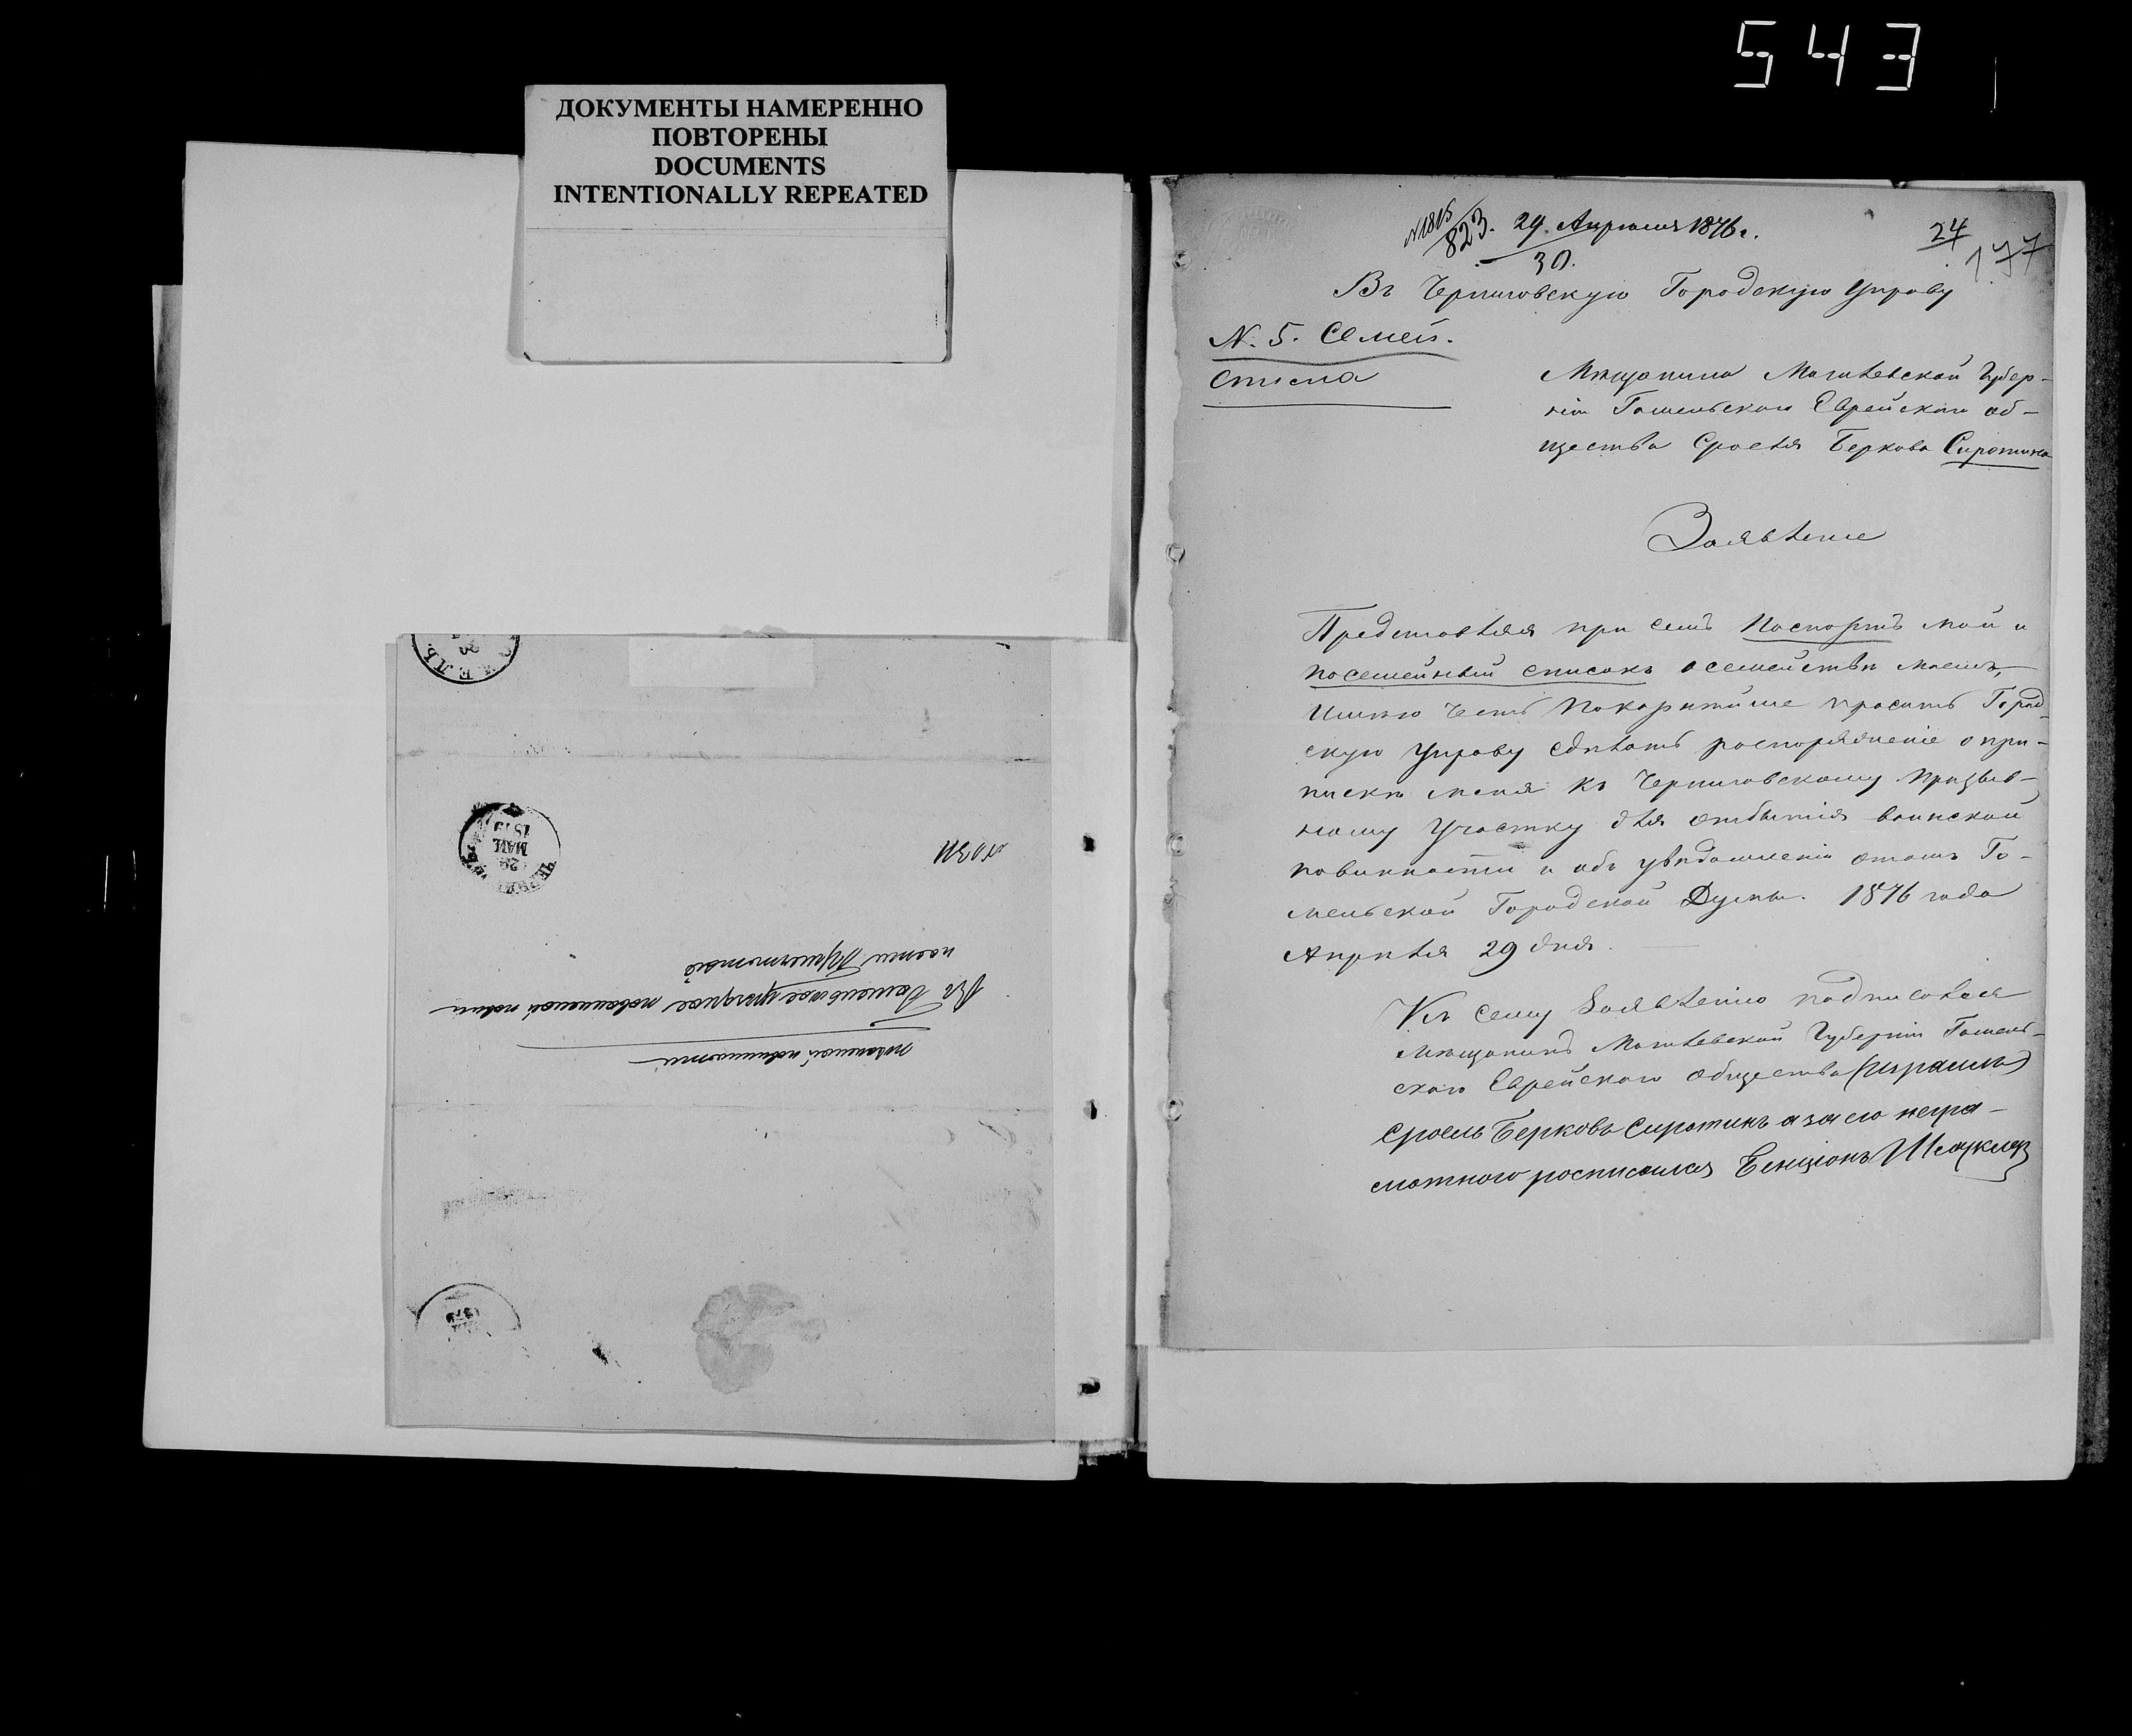 543
ДОКУМЕНТЫ НАМЕРЕННО
ПОВТОРЕНЫ
DOCUMENTS
INTENTIONALLY REPEATED
повинности
Въ Гомельское уѣздное
ности Присутствіе
МАЯ
N 1815
823. 29 Апреля 1876 г.
30.
24
177
Въ Черниговскую Городскую Управу
N. 5. Семей.
списка
Мѣщанина Могилевской Губер-
ніи Гомельского Еврейскаго об-
щества Сроеля Беркова Сиротина
Заявленіе
Представляя при семъ Паспортъ мой и
посемейный списокъ о семействѣ моемъ,
Имѣю честь Покорнѣйше просить Город-
скую Управу сдѣлать распоряженіе о при-
пискѣ меня къ Черниговскому призыв-
ному Участку для отбытія воинской
повинности и объ увѣдомленіи отомъ Го-
мельской Городской Думы. 1876 года
Апрѣля 29 дня.
Къ сему Заявленію подписался
мѣщанинъ Могилевской Губерніи Гомель-
скаго Еврейскаго общества (Израиль)
Сроель Берковъ Сиротинъ а за его негра-
мотнаго росписался Бенціонъ